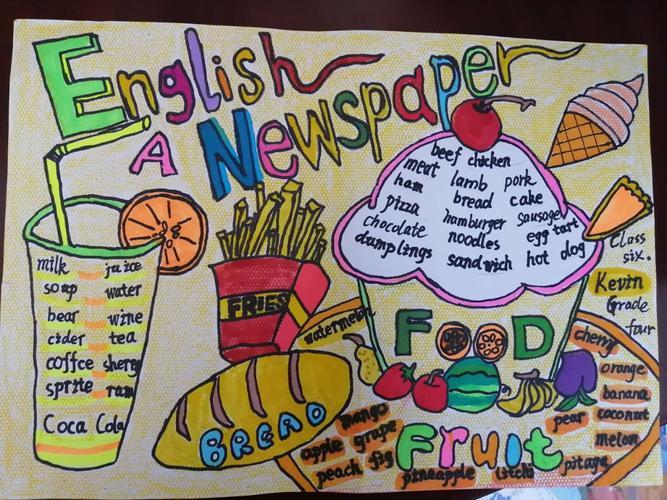 English
A Newspaper
milk juice
soap water
bear wine
cider tea
coffce sherry
sprite ram
Coca Cola
FRIES
BREAD
beef chicken
meat lamb pork
ham bread cake
pizza hamburger sausage
chocolate noodles egg tart
dumplings sandwich hot dog
FOOD
Class
six.
Kevin
Grade
four
watermelon
cherry
orange
banana
pear coconut
melon
pitaya
mango
apple grape
peach fig
pineapple litchi
Fruit